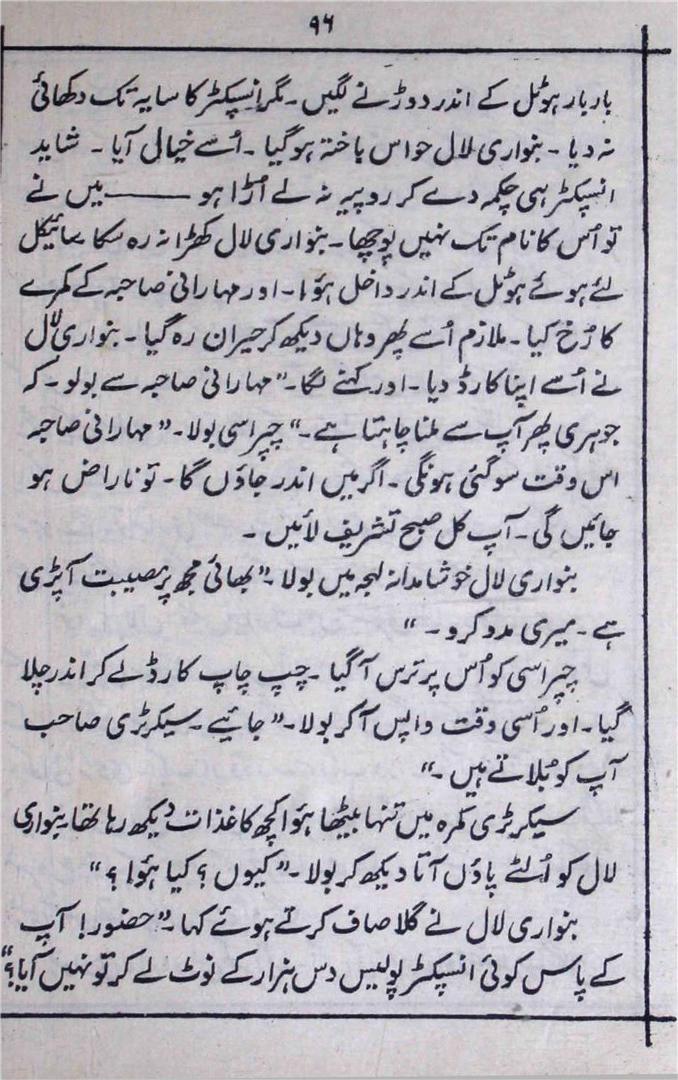 ۹۶
بار بار ہوٹل کے اندر دوڑنے لگیں۔ مگر انسپکٹر کا سایہ تک دکھائی
نہ دیا۔ بنواری لال حواس باختہ ہوگیا۔ اُسے خیال آیا۔ شاید
انسپکٹر ہی چکمہ دے کر روپیہ نہ لے اُڑا ہو ——— میں نے
تو اُس کا نام تک نہیں پوچھا۔ بنواری لال کھڑا نہ رہ سکا سائیکل
لئے ہوئے ہوٹل کے اندر داخل ہؤا۔ اور مہارانی صاحبہ کے کمرے
کا رُخ کیا۔ ملازم اُسے پھر وہاں دیکھ کر حیران رہ گیا۔ بنواری لال
نے اُسے اپنا کارڈ دیا۔ اور کہنے لگا۔ "مہارانی صاحبہ سے بولو۔ کہ
جوہری پھر آپ سے ملنا چاہتا ہے۔" چپراسی بولا۔ "مہارانی صاحبہ
اس وقت سو گئی ہونگی۔ اگر میں اندر جاؤں گا۔ تو ناراض ہو
جائیں گی۔ آپ کل صبح تشریف لائیں۔
بنواری لال خوشامدانہ لہجہ میں بولا۔ "بھائی مجھ پر مصیبت آپڑی
ہے۔ میری مدد کرو۔"
چپراسی کو اُس پر ترس آگیا۔ چپ چاپ کارڈ لے کر اندر چلا
گیا۔ اور اُسی وقت واپس آکر بولا۔ "جائیے۔ سیکرٹری صاحب
آپ کو بُلاتے ہیں۔"
سیکرٹری کمرہ میں تنہا بیٹھا ہؤا کچھ کاغذات دیکھ رہا تھا۔ بنواری
لال کو اُلٹے پاؤں آتا دیکھ کر بولا۔ "کیوں؟ کیا ہؤا؟"
بنواری لال نے گلا صاف کرتے ہوئے کہا۔ "حضور! آپ
کے پاس کوئی انسپکٹر پولیس دس ہزار کے نوٹ لے کر تو نہیں آیا؟"